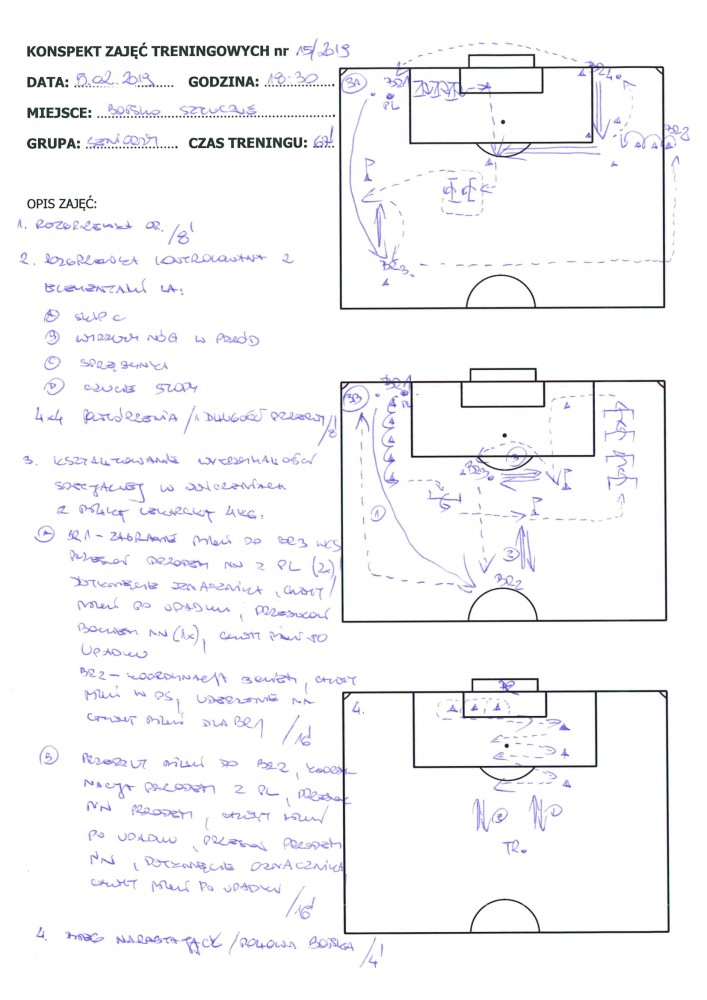 KONSPEKT ZAJĘĆ TRENINGOWYCH nr 15/2019
DATA: 5.02.2019 GODZINA: 18:30
MIEJSCE: BOISKO SZTUCZNE
GRUPA: SENIORZY CZAS TRENINGU:
OPIS ZAJĘĆ:
1. ROZGRZEWKA OR. /8'
2. ROZGRZEWKA KONTROLOWANA Z
ELEMENTAMI LA:
A SKIP C
B WIERZCHY NÓG W PRZÓD
C SPRĘŻYNKI
D CZUCIE STOPY
4x4 POWTÓRZENIA / DŁUGOŚĆ /8'
3. KSZTAŁTOWANIE WYTRZYMAŁOŚCI
SPECJALNEJ W ĆWICZENIACH
Z PIŁKĄ LEKARSKĄ 4KG.
A BR1 - ZAGRANIE PIŁKI DO BR3
PRZODEM NN Z PL (2x)
DOTKNIĘCIE OZNACZNIKA, CHWYT
PIŁKI PO UPADKU, PRZESKOKI
BOKIEM NN (1x), CHWYT PIŁKI PO
UPADKU
BR2 - KOORDYNACJA BOKIEM, CHWYT
PIŁKI W PS, UDERZENIE NA
CHWYT PIŁKI DLA BR1 /16'
B PRZERZUT PIŁKI DO BR2, KOORDY
NACJA PRZODEM Z PL,
NN PRZODEM, CHWYT PIŁKI
PO UPADKU, PRZESKOKI PRZODEM
NN, DOTKNIĘCIE OZNACZNIKA
CHWYT PIŁKI PO UPADKU /16'
4. BIEG NARASTAJĄCY / POŁOWA BOISKA /4'
3A BR1 PL BR4
BR2
P
BR3
3B BR1 PL
BR3 3 P
1 P
2
BR2
4. BR
TR